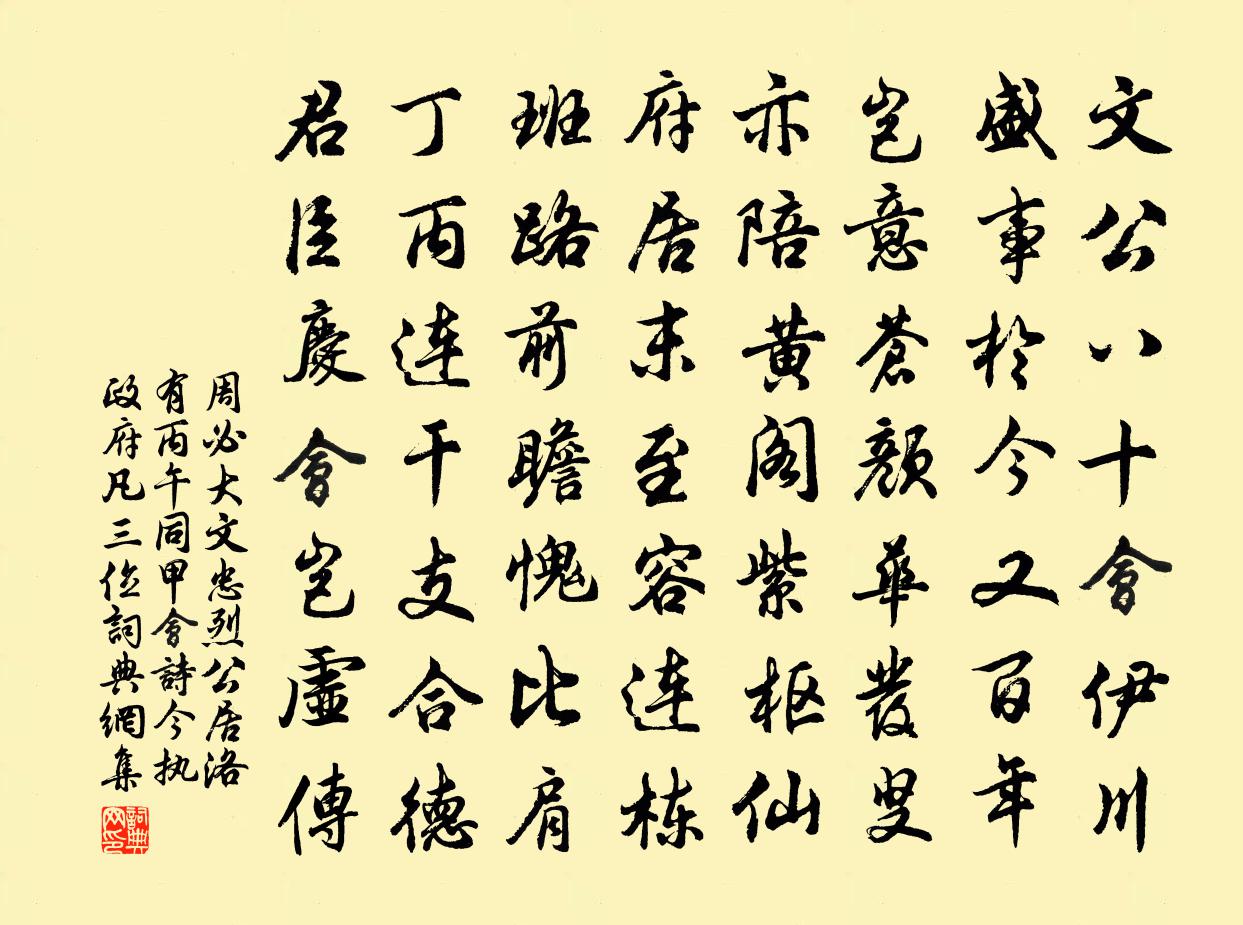 文公八十會伊川
盛事於今又百年
豈意蒼顏華發叟
亦陪黃阁紫枢仙
府居末至容連栋
班路前瞻愧比肩
丁丙連干支合德
君臣慶會豈虛傳
周必大文忠烈公居洛
有丙午同甲會詩今执
政府凡三位詞典網集
詞典網印